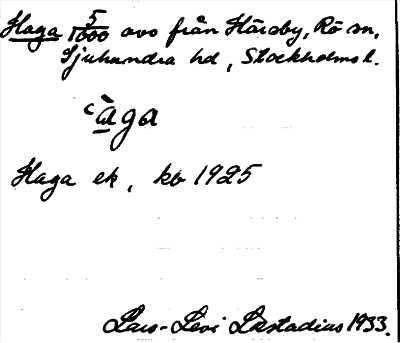 Haga 5/1600 avs från Härsby, Rö sn,
Sjuhundra hd, Stockholms l.
ʽàga
Haga ek, kb 1925
Lars-Levi Læstadius 1933.